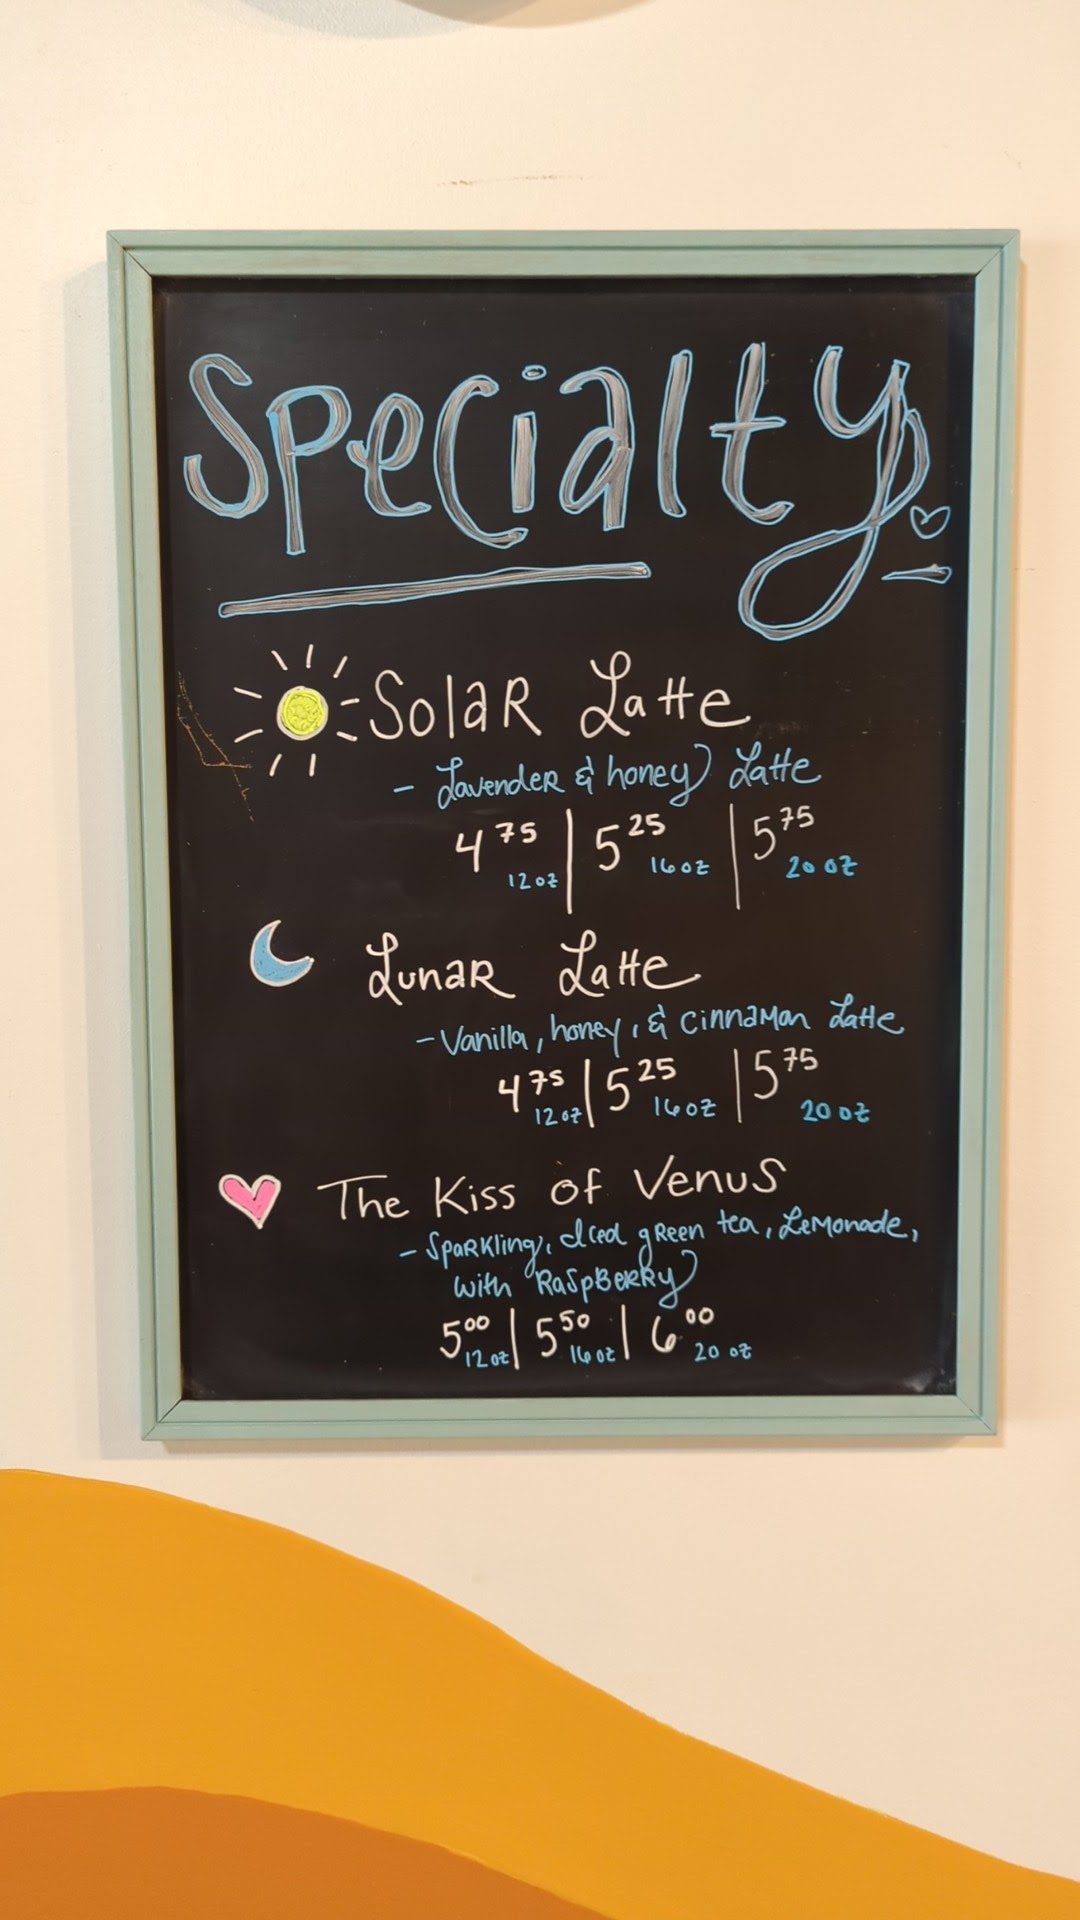 Specialty
Solar Latte
- Lavender & honey Latte
4 75 | 5 25 | 5 75
12 oz 16 oz 20 oz
Lunar Latte
- Vanilla, honey, & cinnamon Latte
4 75 | 5 25 | 5 75
12 oz 16 oz 20 oz
The Kiss of Venus
- Sparkling, Iced green tea, Lemonade,
with Raspberry
5 00 | 5 50 | 6 00
12 oz 16 oz 20 oz